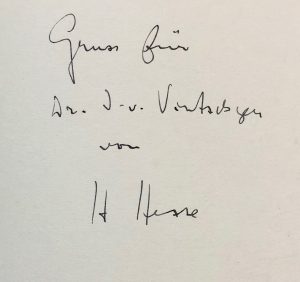 Gruss für
Dr. J. v.
von
H Hesse